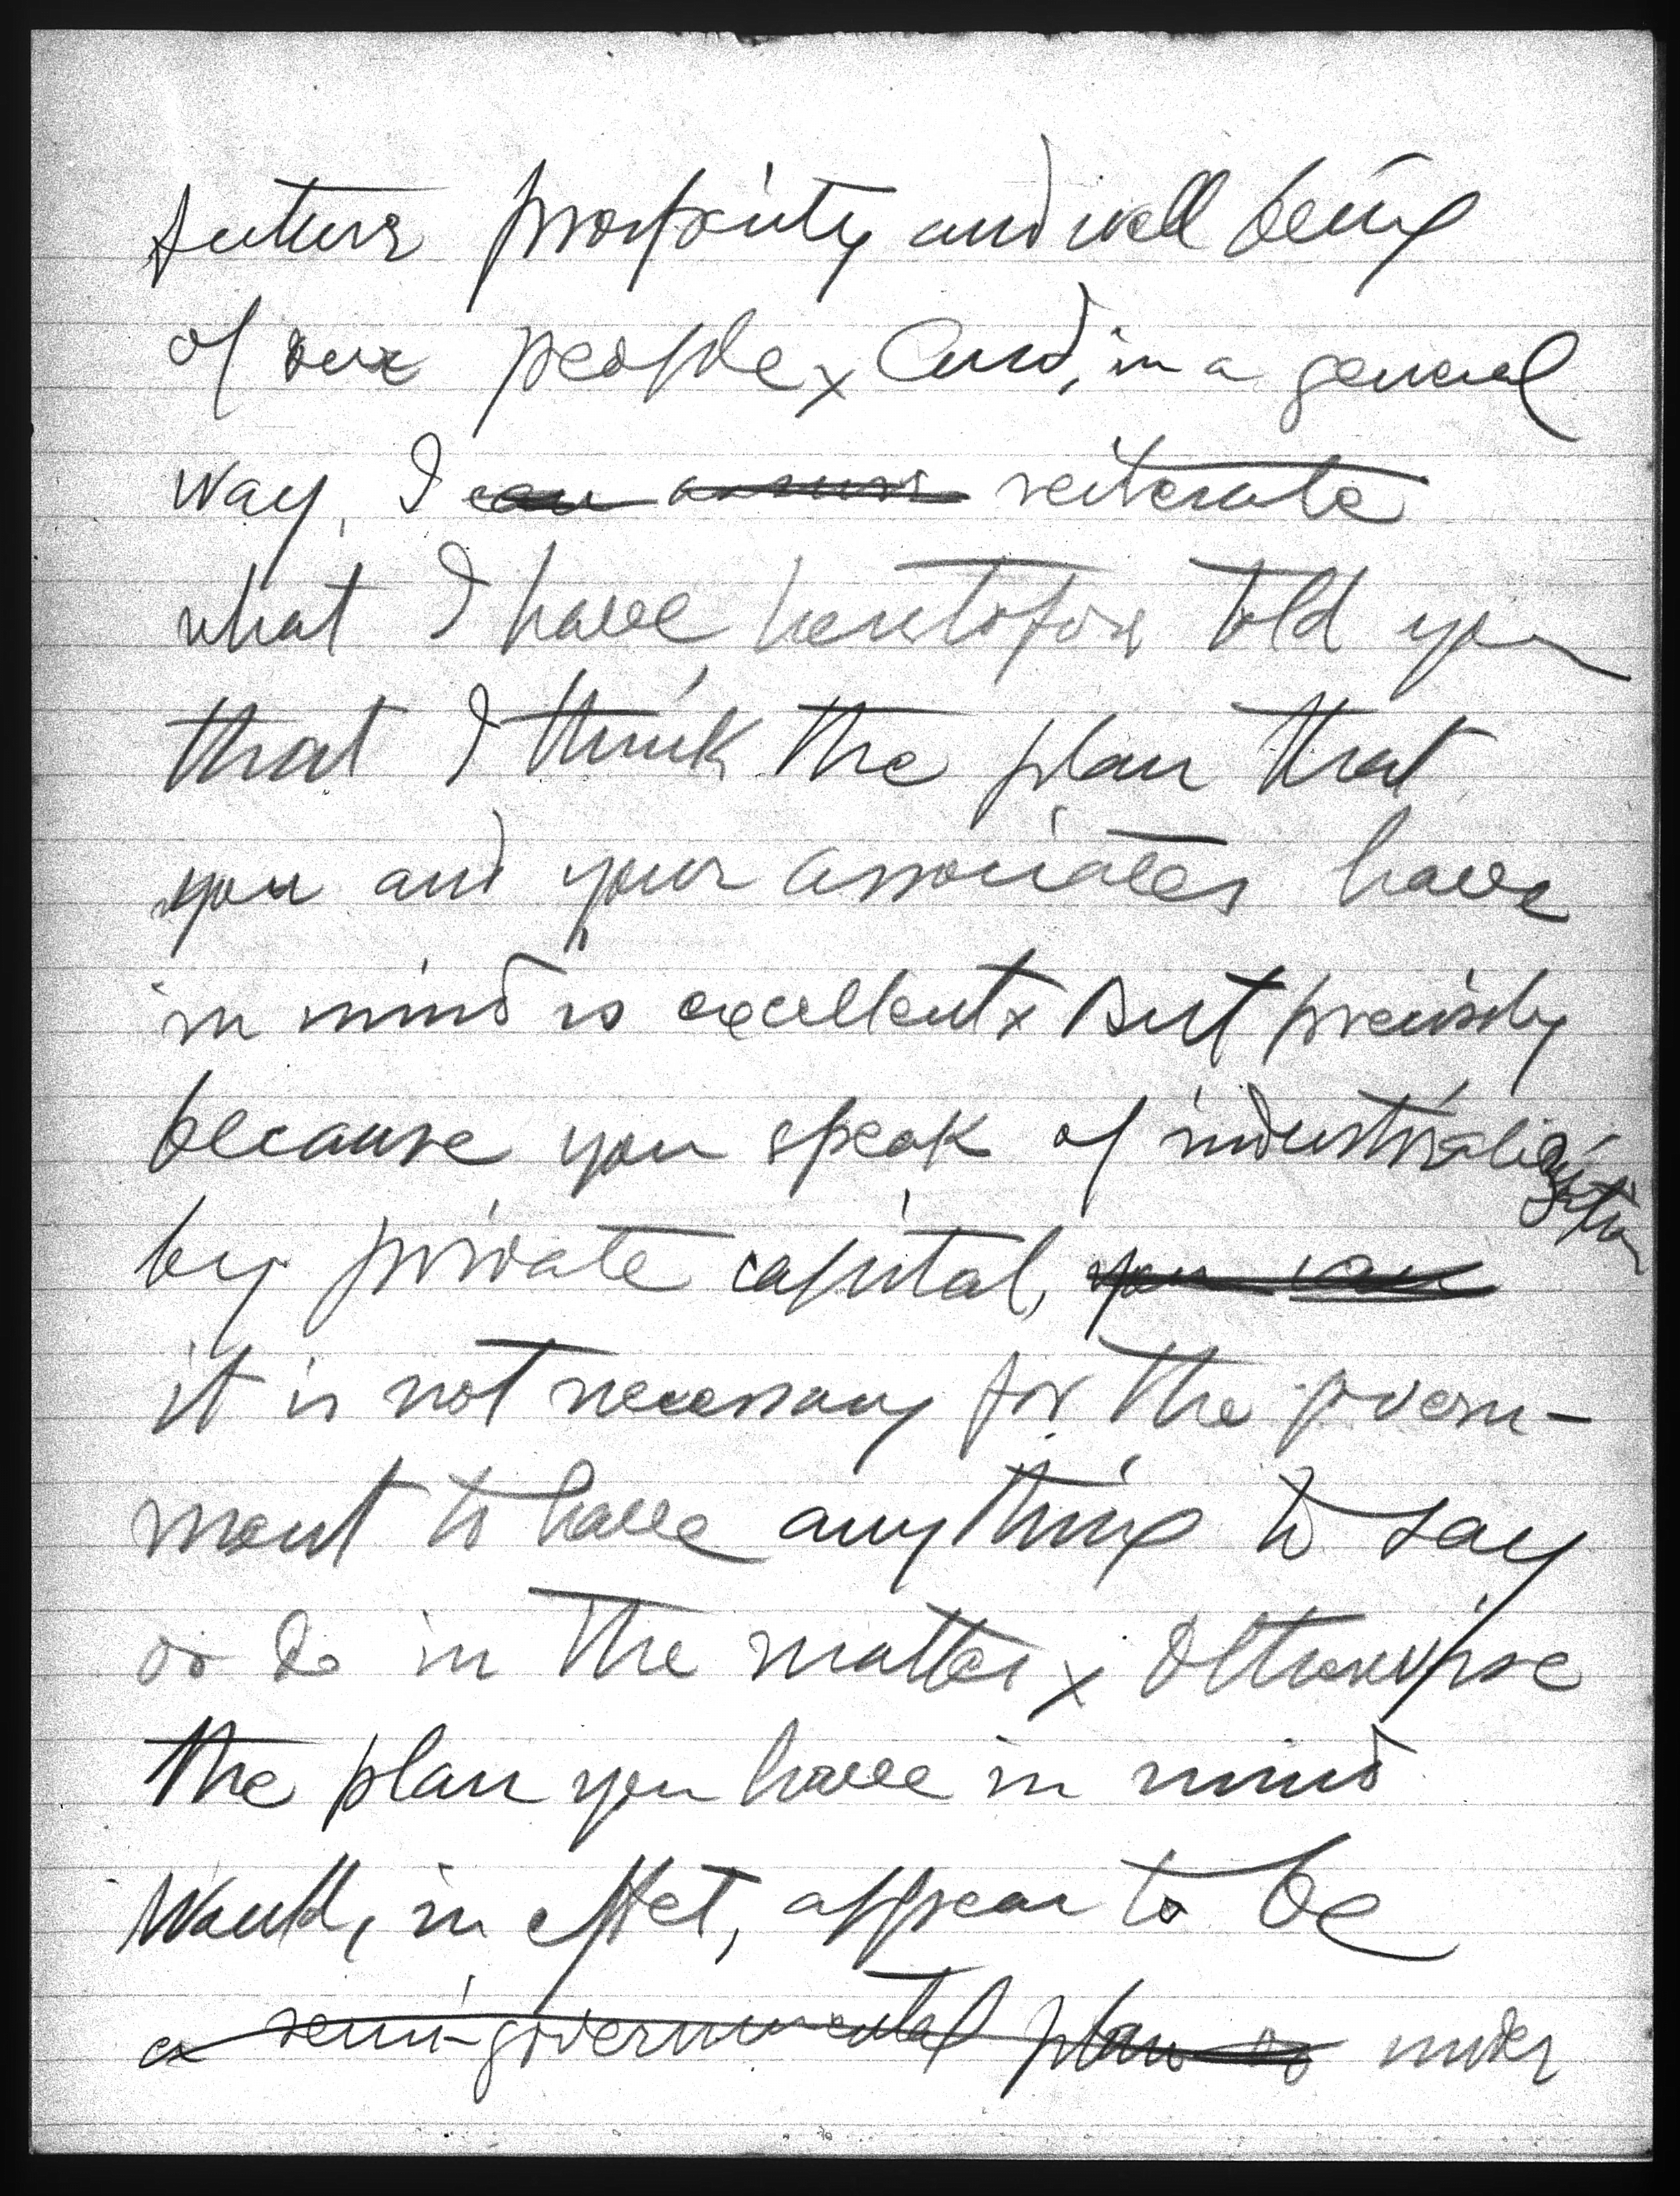 future prosperity and well being
of our people x And, in a general
way, I can assure reiterate
what I have heretofore told you
that I think the plan that
you and your associates have
in mind is excellent x But precisely
because you speak of industrialization
by private capital, you can
it is not necessary for the govern-
ment to have anything to say
or do in the matter x Otherwise
the plan you have in mind
would, in effect, appear to be
a semi-governmental plan or under